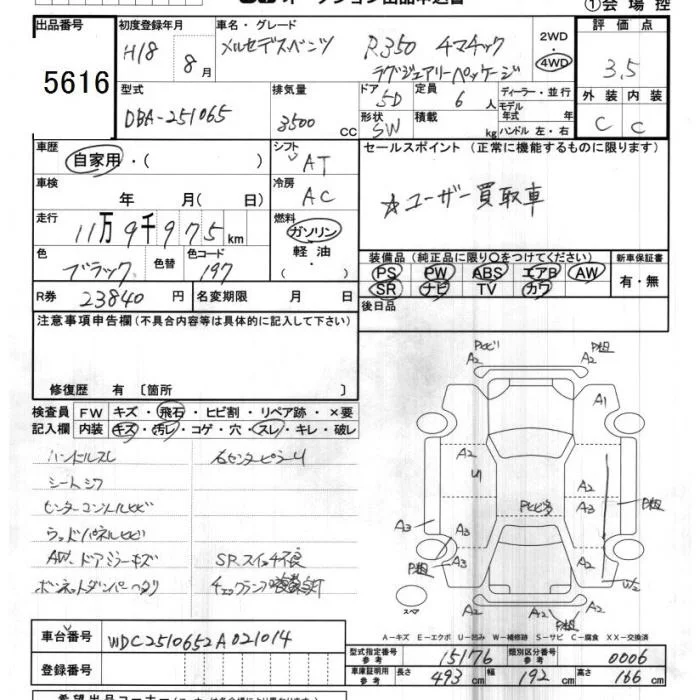 ①会場控
出品番号
5616
初度登録年月
H18 8月
車名・グレード
メルセデスベンツ R350 4マチック
ラグジュアリーパッケージ
2WD
4WD
評価点
3.5
外装 内装
C C
型式
DBA-251065
排気量
3500 CC
ドア 5D
形状 SW
定員 6 人
積載 kg
ディーラー・並行
モデル年式 年
ハンドル 左・右
車歴
自家用・( )
シフト AT
車検
年 月( 日)
冷房 AC
走行
11万9千975km
燃料
ガソリン
軽油
・
色
ブラック
色替
色コード
197
R券 23840 円
名変期限 月 日
セールスポイント (正常に機能するものに限ります)
☆ユーザー買取車
装備品 (純正品に限り○をつけてください)
PS PW ABS エアB AW
SR ナビ TV カワ
新車保証書
有・無
後日品
注意事項申告欄(不具合内容等は具体的に記入して下さい)
修復歴 有 〔箇所 〕
検査員記入欄
FW キズ・飛石・ヒビ割・リペア跡・×要
内装 キズ・汚レ・コゲ・穴・スレ・キレ・破レ
ハンドルスレ
シートシワ
センターコンソールヒビ
ウッドパネルヒビ
AW、ドアミラーキズ
SR.スイッチ不良
ボンネットダンパーヘタリ
Pヒビ
A2 A2
P粗
A1
A2 U A2
A2
Pヒビ多
A3
A3 A3
P粗
A2
P粗
A3
A3
W2
スペア
A2 A2
P粗
A－キズ E－エクボ U－凹み W－補修跡 S－サビ C－腐食 XX－交換済
車台番号 WDC2510652A021014
登録番号
型式指定番号参考 15176
類別区分番号参考 0006
車庫証明用参考 長さ 493 cm 幅 192 cm 高さ 166 cm